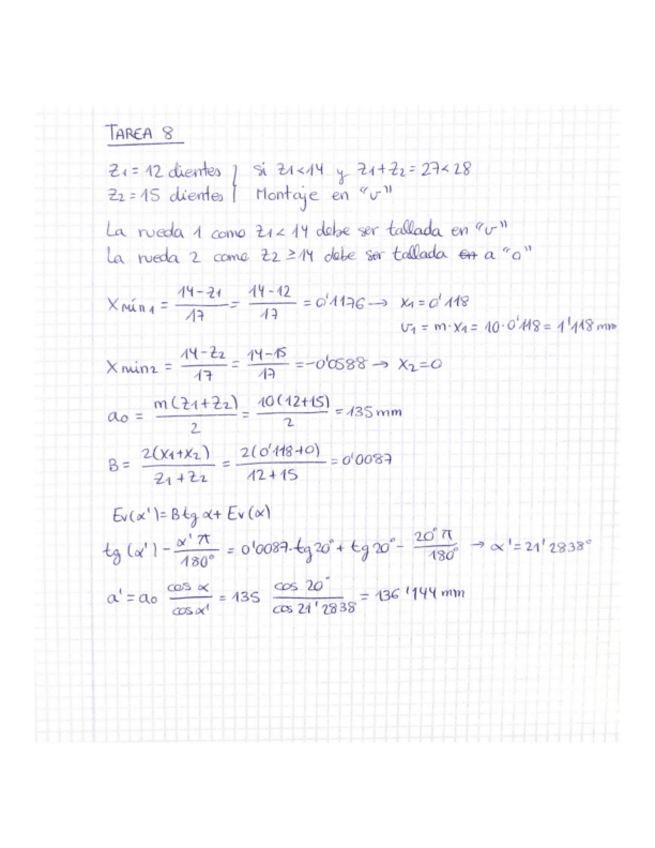 TAREA 8
Z1 = 12 dientes } si Z1<14 y Z1+Z2 = 27<28
Z2 = 15 dientes } Montaje en "v"
La rueda 1 como Z1< 14 debe ser tallada en "v"
La rueda 2 como Z2 ≥14 debe ser tallada en a "o"
Xmín1 = (14-Z1)/17 = (14-12)/17 = 0'1176 → X1=0'118
V1 = m·X1 = 10·0'118 = 1'118 mm
Xmin2 = (14-Z2)/17 = (14-15)/17 = -0'0588 → X2=0
a0 = m(Z1+Z2)/2 = 10(12+15)/2 = 135 mm
B = 2(X1+X2)/(Z1+Z2) = 2(0'118+0)/(12+15) = 0'0087
Ev(α')= B tg α + Ev(α)
tg(α') - α'π/180° = 0'0087·tg 20° + tg 20° - 20°π/180° → α'= 21'2838°
a' = a0 cos α/cos α' = 135 cos 20°/cos 21'2838 = 136'144 mm